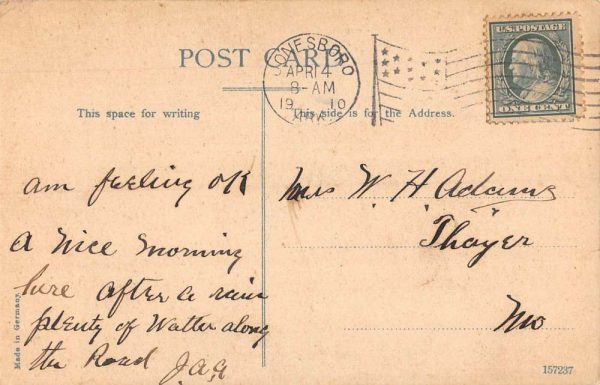 POST CARD
JONESBORO
APR 14
8-AM
1910
ARK
U.S. POSTAGE
ONE CENT
This space for writing
This side is for the Address.
am feeling OK
A Nice morning
here after a rain
plenty of Watter along
the Road J.A.A
Mrs W. H. Adams
Thayer
Mo
Made in Germany.
157237